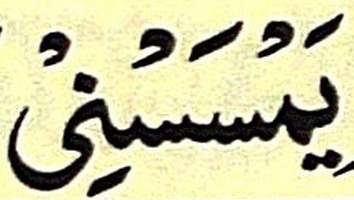 يَمْسَسْنِىْ